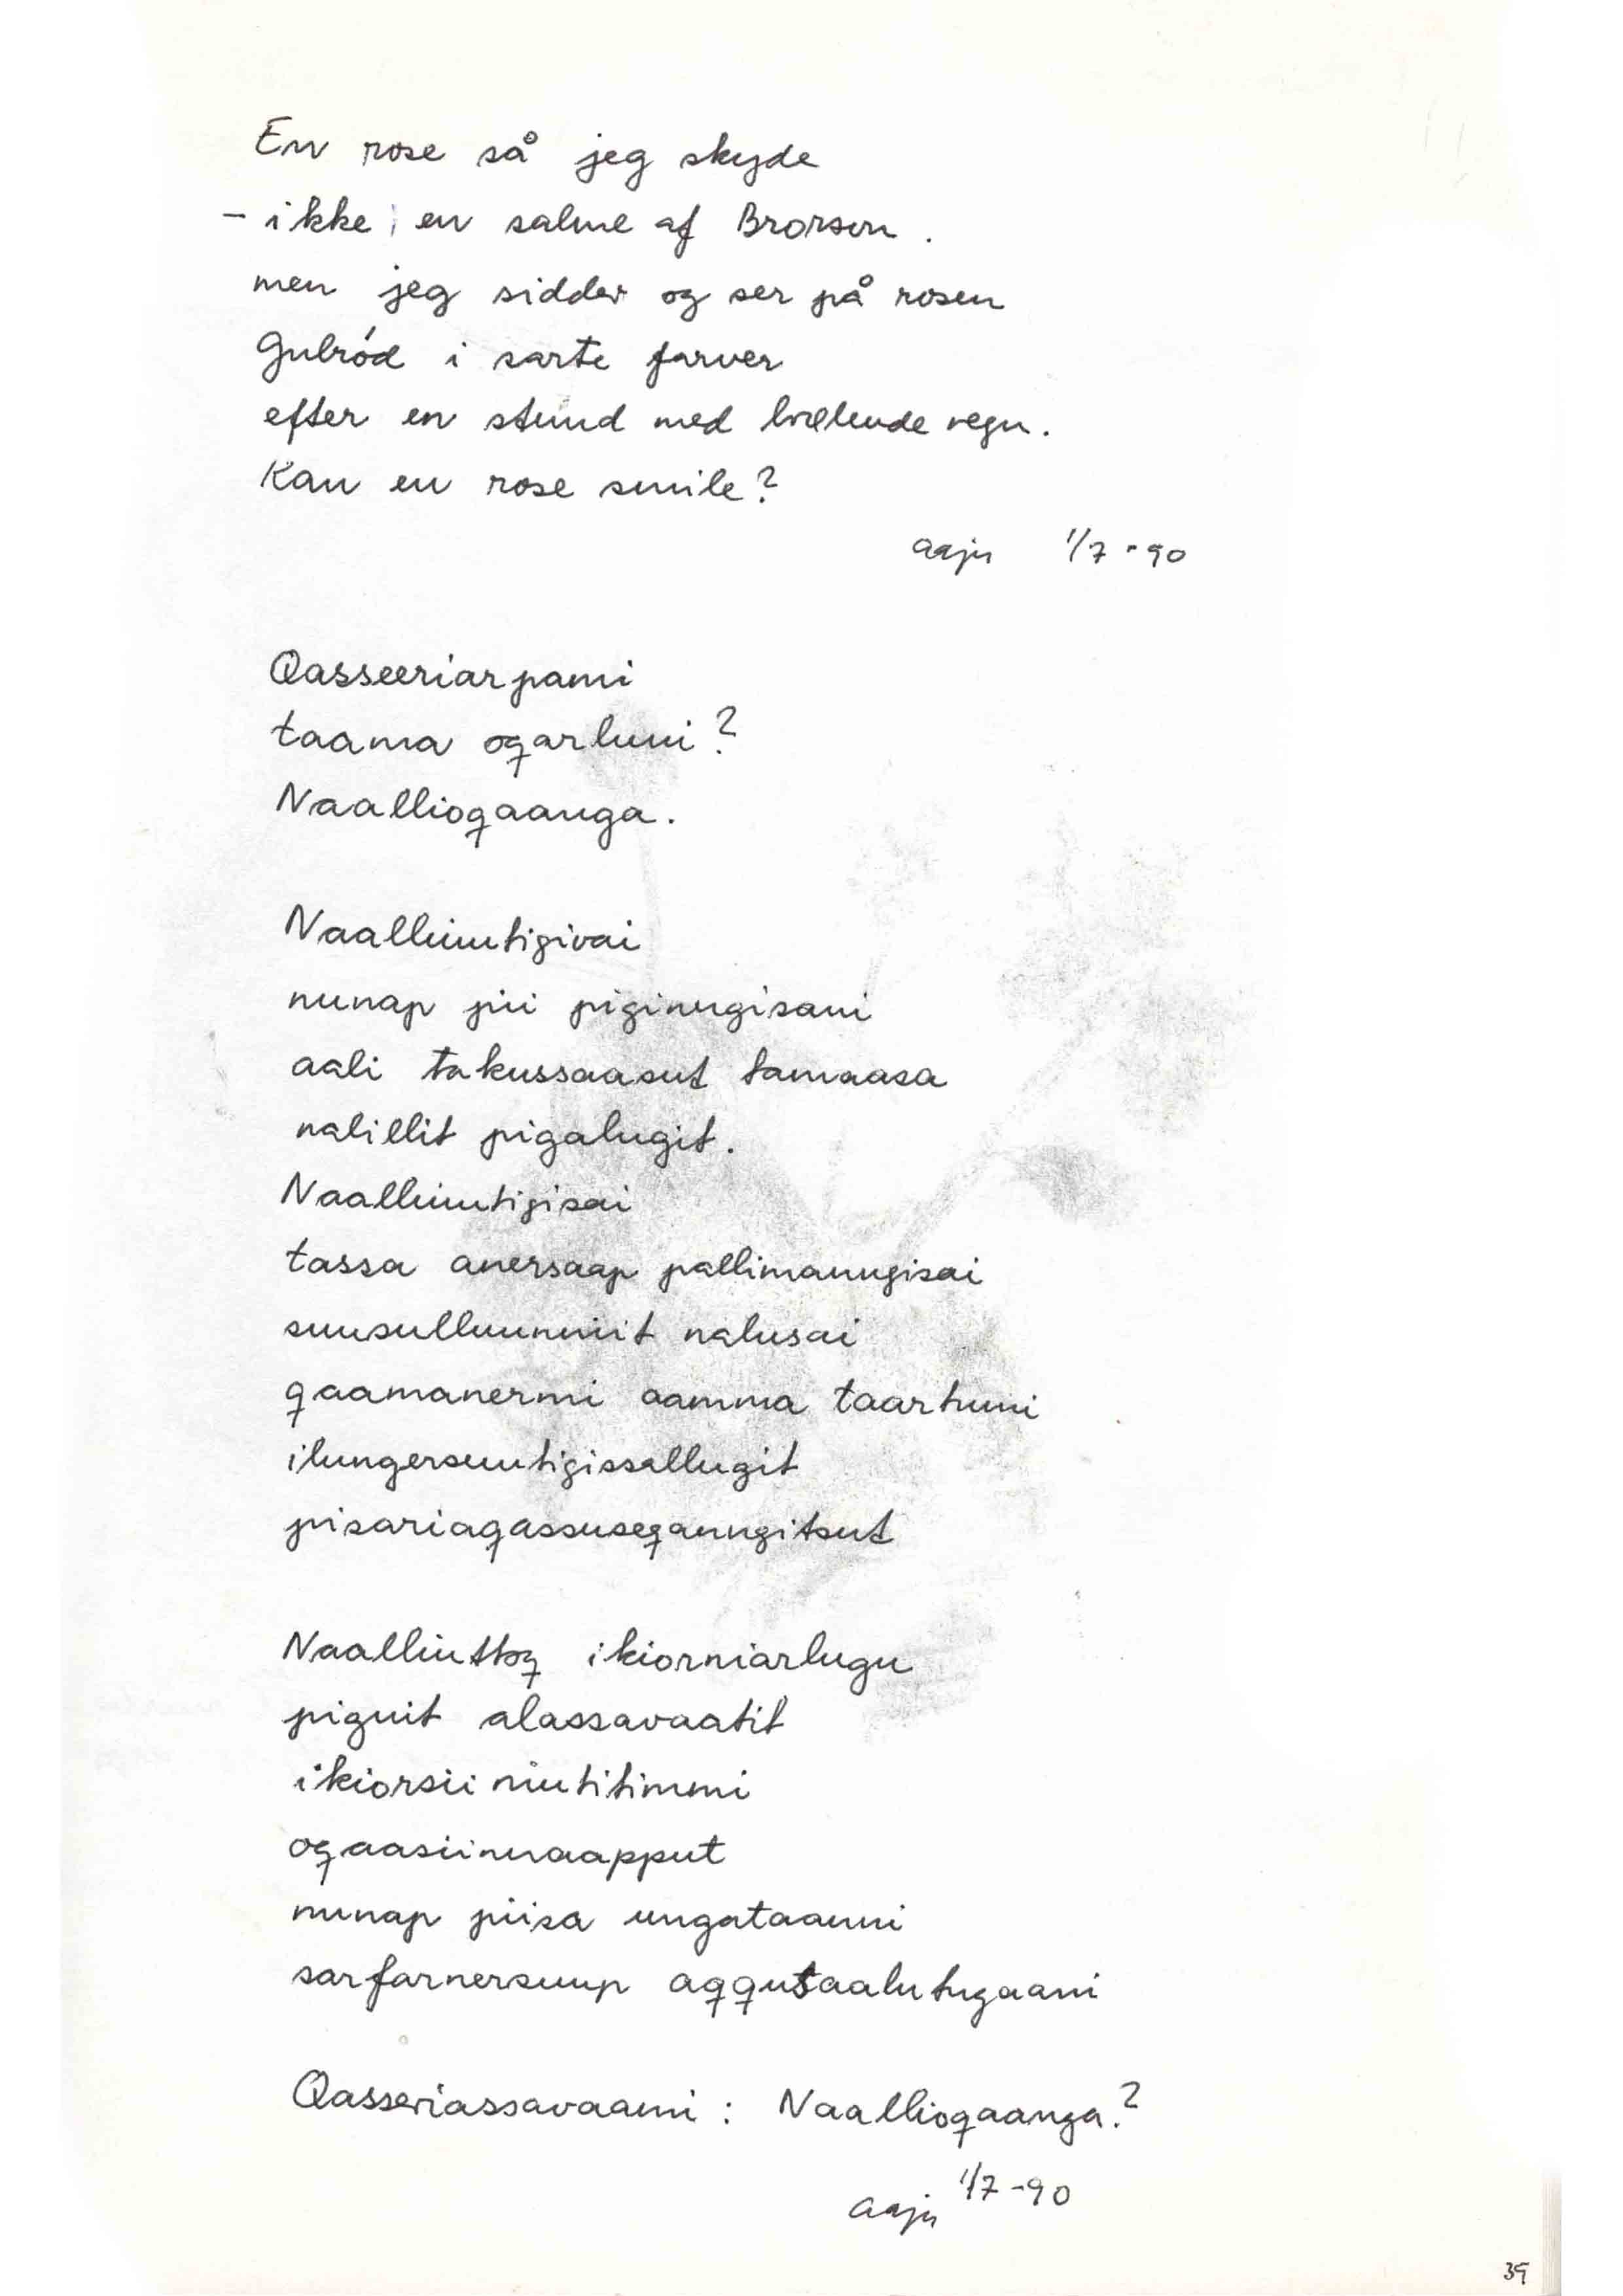 En rose så jeg skyde
- ikke en salme af Brorson.
men jeg sidder og ser på rosen
Gulrød i sarte farver
efter en stund med brølende regn.
Kan en rose smile?
aaju 1/7-90
Qasseeriarpami
taama oqarluni?
Naallioqaanga.
Naalliuutigivai
nunap pii piginngisani
aali takussaasut tamaasa
nalillit pigalugit.
Naalliuutigisai
tassa anersaap pallimanngisai
suusulluunniit nalusai
qaamanermi aamma taartumi
ilungersuutigissallugit
pisariaqassuseqanngitsut
Naalliuttoq ikiorniarlugu
piguit alassavaatit
ikiorsiiniutitinni
oqaasiinnaapput
nunap piisa ungataanni
sarfarnersuup aqqutaalutugaani
Qasseriassavaami: Naallioqaanga.?
aaju 1/7-90
39